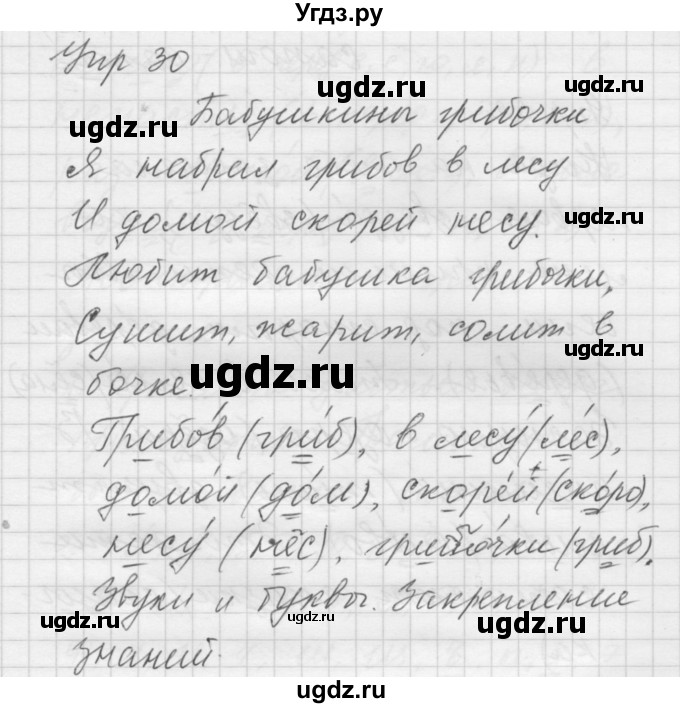 Угдз.ру
Упр 30
ugdz.ru
ugdz.ru
Бабушкины грибочки
ugdz.ru
Я набрал грибов в лесу
И домой скорей несу.
ugdz.ru
Любит бабушка грибочки,
Сушит, жарит, солит в
ugdz.ru
бочке.
ugdz.ru
Грибо́в (гри́б), в лесу́ (ле́с),
домо́й (до́м), скоре́й (ско́ро),
несу́ (нёс), грибо́чки (гриб).
Звуки и буквы. Закрепление
ugdz.ru
ugdz.ru
ugdz.ru
знаний.
ugdz.ru